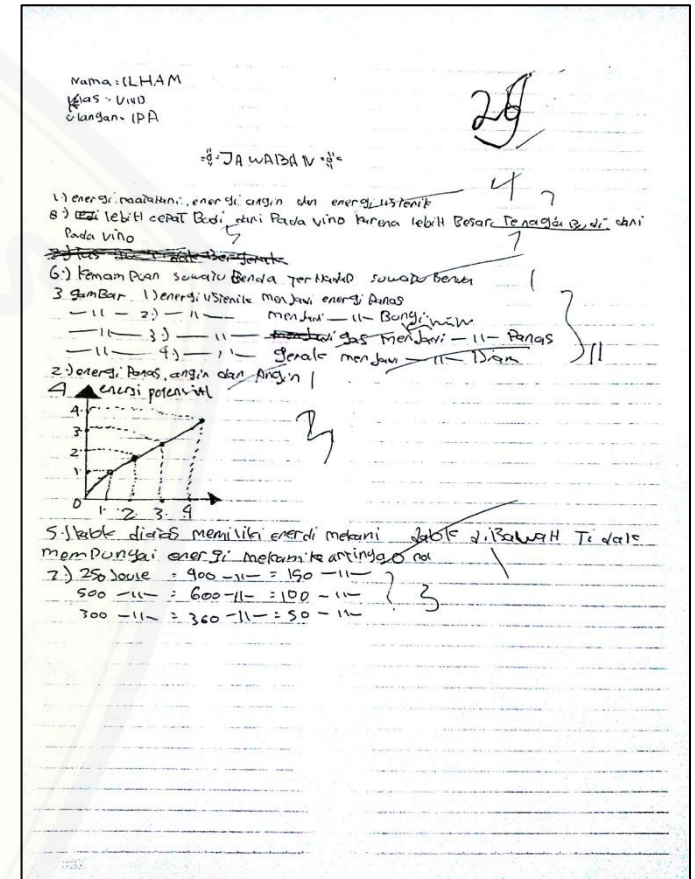 Nama : ILHAM
Klas : VIIID
Ulangan : IPA
JAWABAN
26
1.) energi matahari, energi angin dan energi listerik
4
8.) lebitl cepat Bodi dari Pada vino karena lebitl Besar Tenaga Budi dari
Pada vino
6.) Kemampuan suwatu Benda Terhadap suwatu Benda
1
3 gamBar 1) energi listerik menJadi energi Panas
— 11 — 2.) — 11 — menJadi — 11 — Bunyi
— 11 — 3.) — 11 — gas menJadi — 11 — Panas
11
— 11 — 4.) — 11 — gerak menJadi — 11 — Diam
2.) energi Panas, angin dan Angin
1
4 energi potensial
4
3
2
1
0 1 2 3 4
3
5.) table diatas memiliki enerdi mekani table diBawaH Tidak
memPunyai energi mekanik artinya 0
7.) 250 Joule = 400 — 11 — = 150 — 11 —
500 — 11 — = 600 — 11 — = 100 — 11 —
3
300 — 11 — = 360 — 11 — = 50 — 11 —